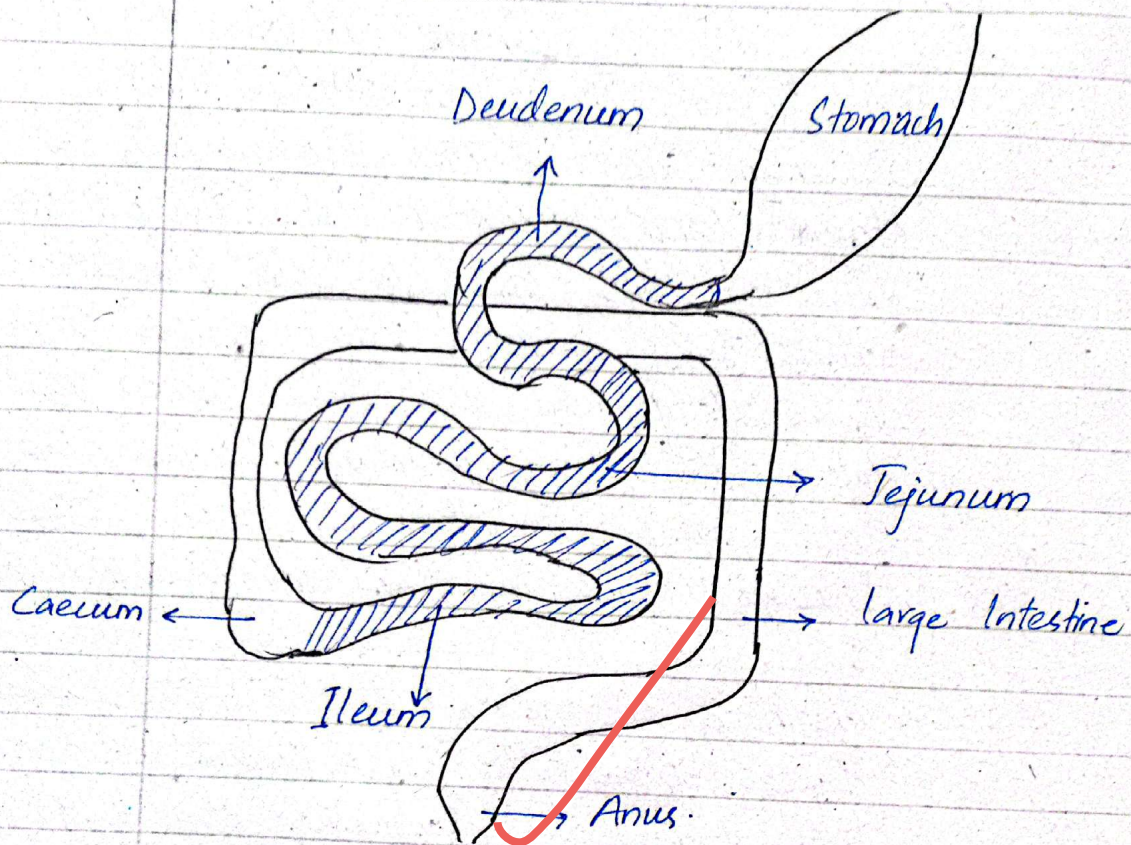 Deudenum
Stomach
Jejunum
Caecum
large Intestine
Ileum
Anus.